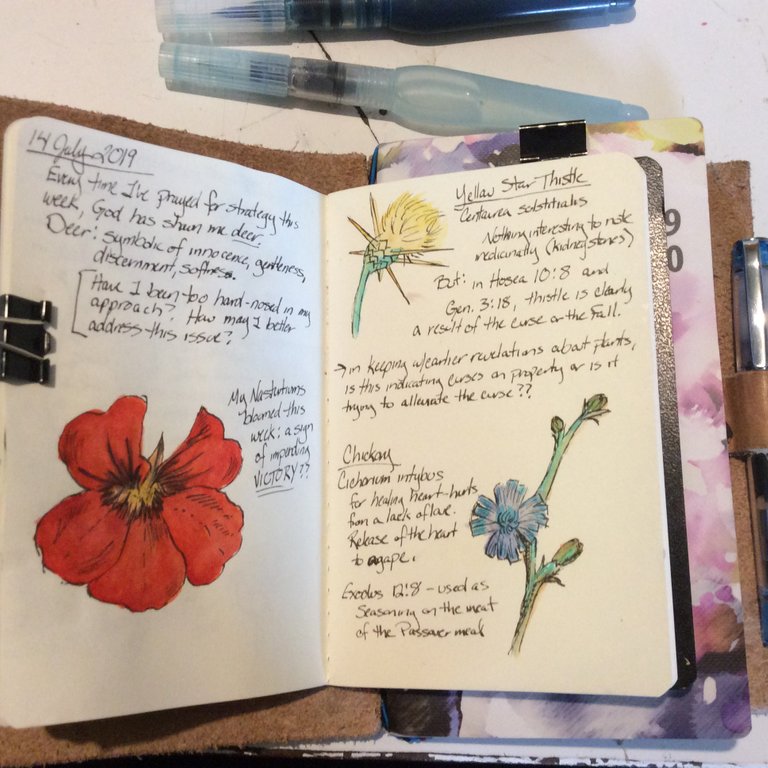 14 July 2019
Every time I've prayed for strategy this
week, God has shown me deer.
Deer: symbolic of innocence, gentleness,
discernment, softness.
[Have I been too hard-nosed in my
approach? How may I better
address this issue?
My Nasturtiums
bloomed this
week: a sign
of impending
VICTORY??
Yellow Star Thistle
Centaurea solstitialis
Nothing interesting to note
medicinally (kidney stones)
But: in Hosea 10:8 and
Gen. 3:18, thistle is clearly
a result of the curse or the Fall.
→ in keeping w/earlier revelations about plants,
is this indicating curses on property or is it
trying to alleviate the curse??
Chickory
Cichorium intybus
for healing heart-hurts
from a lack of love.
Release of the heart
to agape.
Exodus 12:8 - used as
seasoning on the meat
of the Passover meal
9
0